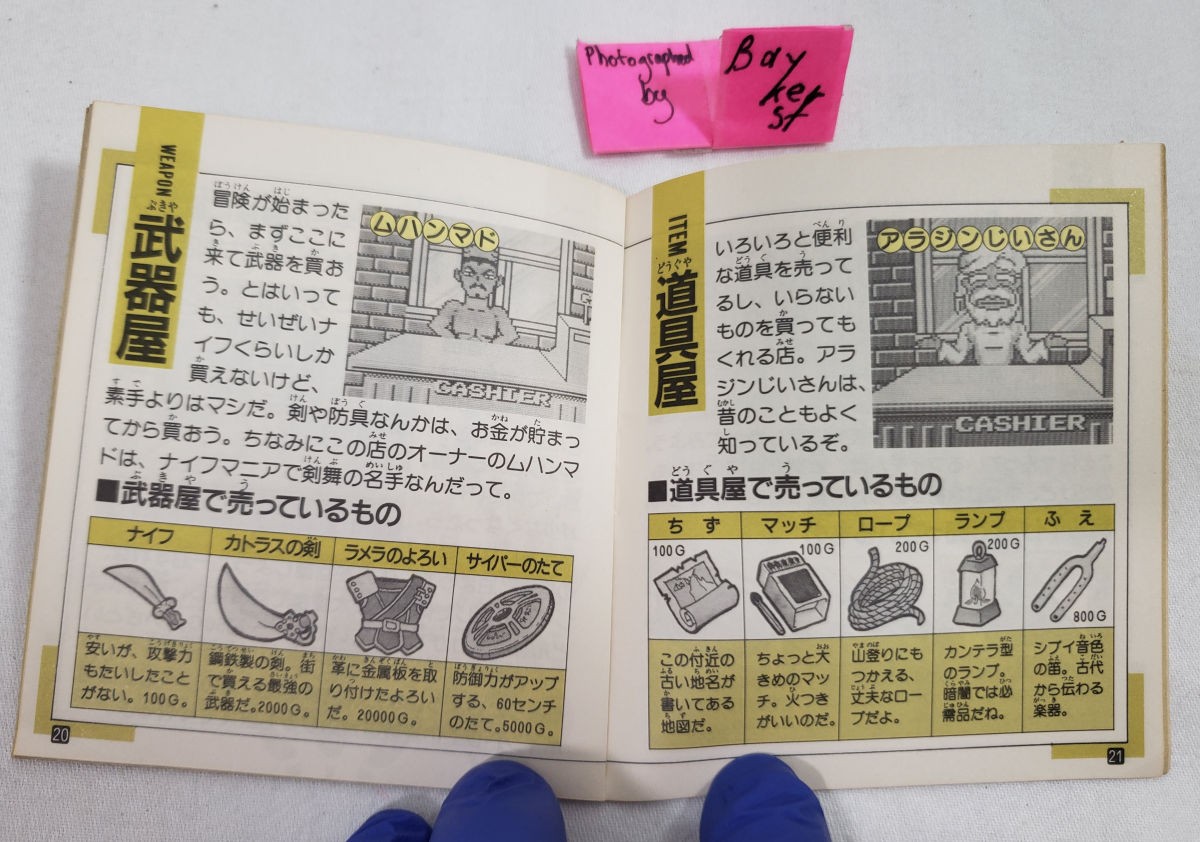 Photographed
by
Bay
ker
st
WEAPON
武器屋
ぶきや
冒険が始まった
ら、まずここに
来て武器を買お
う。とはいって
も、せいぜいナ
イフくらいしか
買えないけど、
素手よりはマシだ。剣や防具なんかは、お金が貯まっ
てから買おう。ちなみにこの店のオーナーのムハンマ
ドは、ナイフマニアで剣舞の名手なんだって。
ムハンマド
CASHIER
■武器屋で売っているもの
ナイフ
安いが、攻撃力
もたいしたこと
がない。100G。
カトラスの剣
鋼鉄製の剣。街
で買える最強の
武器だ。2000G。
ラメラのよろい
革に金属板を取
り付けたよろい
だ。20000G。
サイパーのたて
防御力がアップ
する、60センチ
のたて。5000G。
20
ITEM
道具屋
どうぐや
いろいろと便利
な道具を売って
るし、いらない
ものを買っても
くれる店。アラ
ジンじいさんは、
昔のこともよく
知っているぞ。
アラジンじいさん
CASHIER
■道具屋で売っているもの
ちず
100G
この付近の
古い地名が
書いてある
地図だ。
マッチ
100G
ちょっと大
きめのマッ
チ。火つき
がいいのだ。
ロープ
200G
山登りにも
つかえる、
丈夫なロー
プだよ。
ランプ
200G
カンテラ型
のランプ。
暗闇では必
需品だね。
ふえ
800G
シブイ音色
の笛。古代
から伝わる
楽器。
21